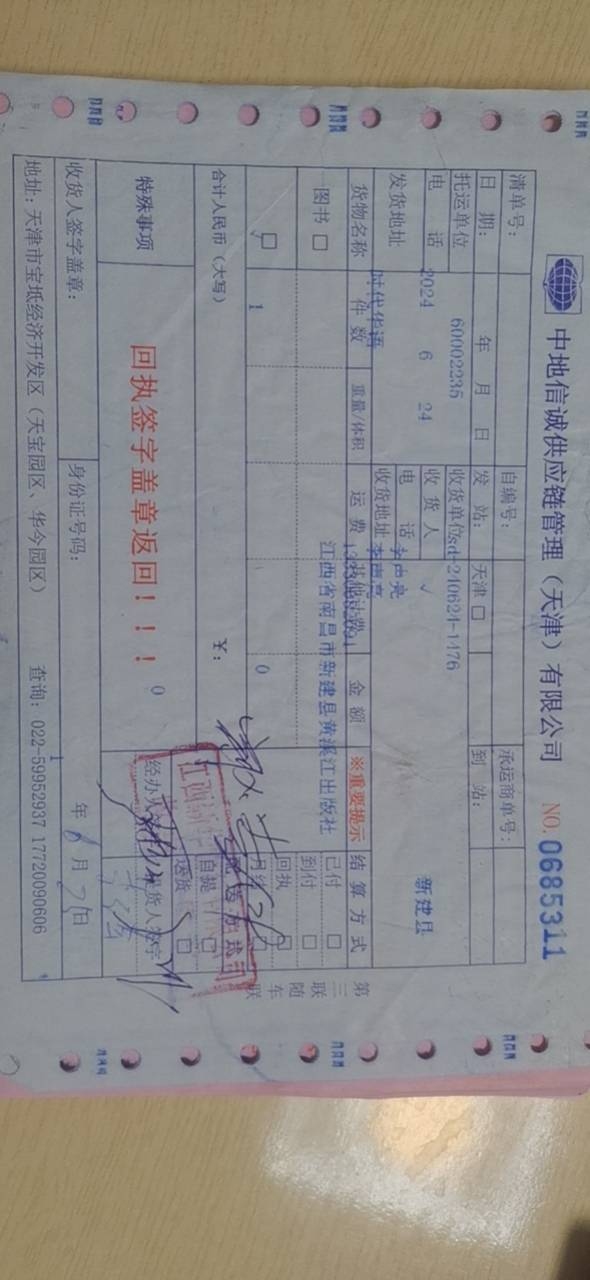 中地信诚供应链管理（天津）有限公司 NO. 0685311
清单号： 自编号： 承运商单号：
日 期： 年 月 日 发 站： 天津 □ 到 站：
托运单位 60002235 收货单位 sd-240624-1476
电 话 2024 6 24 收 货 人 √ 新建县
发货地址 时代华语 电 话 李声亮
收货地址 李声亮
货物名称 件 数 重量/体积 运 费 其他计费 金 额 ※重要提示 结 算 方 式
江西省南昌市新建县黄溪江出版社
图书 □ 已付 □
到付 □
□ 1 0 回执 □
月结 □
合计人民币（大写） ￥： 送 货 方 式
自提 □
送货 □
特殊事项 回执签字盖章返回！！！ 0 经办人 提货人签字
收货人签字盖章： 身份证号码： 1 年 6 月 日
地址：天津市宝坻经济开发区（天宝园区、华今园区） 查询：022-59952937 17720090606
第三联 随车联